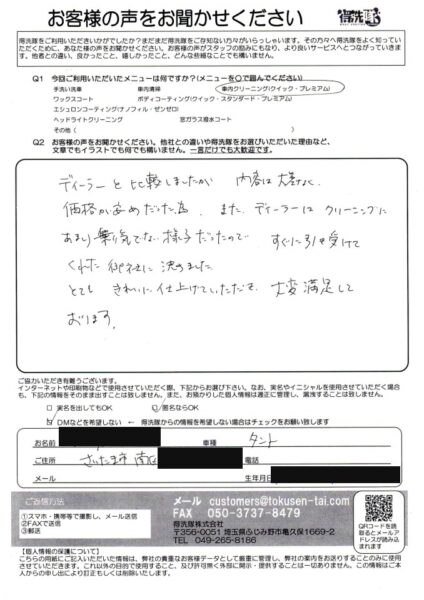 お客様の声をお聞かせください
得洗隊
得洗隊をご利用いただきいかがでしたか?まだまだ得洗隊をご存知ない方々がいらっしゃいます。その方々へ得洗隊をよく知ってい
ただくために、あなた様の声をお聞かせください。お客様の声がスタッフの励みにもなり、より良いサービスへとつながっていきます。
他者との違い、良かったこと、嬉しかったこと、どんな些細なことでも構いません。
Q1 今回ご利用いただいたメニューは何ですか?(メニューを〇で囲んでください)
手洗い洗車 車内清掃 車内クリーニング(クイック・プレミアム)
ワックスコート ボディコーティング(クイック・スタンダード・プレミアム)
エシュロンコーティング(ナノフィル・ゼンゼロ)
ヘッドライトクリーニング 窓ガラス撥水コート
その他( )
Q2 お客様の声をお聞かせください。他社との違いや得洗隊をお選びいただいた理由など、
文章でもイラストでも何でも構いません。一言だけでも大歓迎です。
ディーラーと比較しましたが 内容は大差なく
価格が安めだった為、また、ディーラーはクリーニングに
あまり乗り気でない様子だったので すぐに引き受けて
くれた御社に決めました
とても きれいに仕上げていただき 大変満足して
おります。
ご協力いただき有難うございます。
インターネットや印刷物などで使用させていただく際、下記からお選び下さい。なお、実名やイニシャルを使用させていただく場合
も、下記の情報をそのまま出すことは致しません。また、お預かりした個人情報は適正に管理し、漏洩することは致しません。
□ 実名を出してもOK ☑ 匿名ならOK
☑ DMなどを希望しない ← 得洗隊からの情報を希望しない場合はチェックをお願い致します
お名前 車種 タント
ご住所 さいたま市 南区
メール 生年月日
ご返信方法
①スマホ・携帯等で撮影し、メール送信
②FAXで送信
③郵送
メール customers@tokusen-tai.com
FAX 050-3737-8479
得洗隊株式会社
〒356-0051 埼玉県ふじみ野市亀久保1669-2
TEL 049-265-8186
QRコードを読
取るとメールア
ドレスが読み込
まれます
【個人情報の保護について】
こちらの用紙にご記入いただいた情報は、弊社の貴重なお客様データとして厳重に管理し、弊社の案内をお送りすることのみに使用
させていただきます。これ以外の目的で使用すること、及び許可無く外部に開示・提供することは一切ありません。この情報はご本
人からの申し出により訂正もしくは削除いたします。